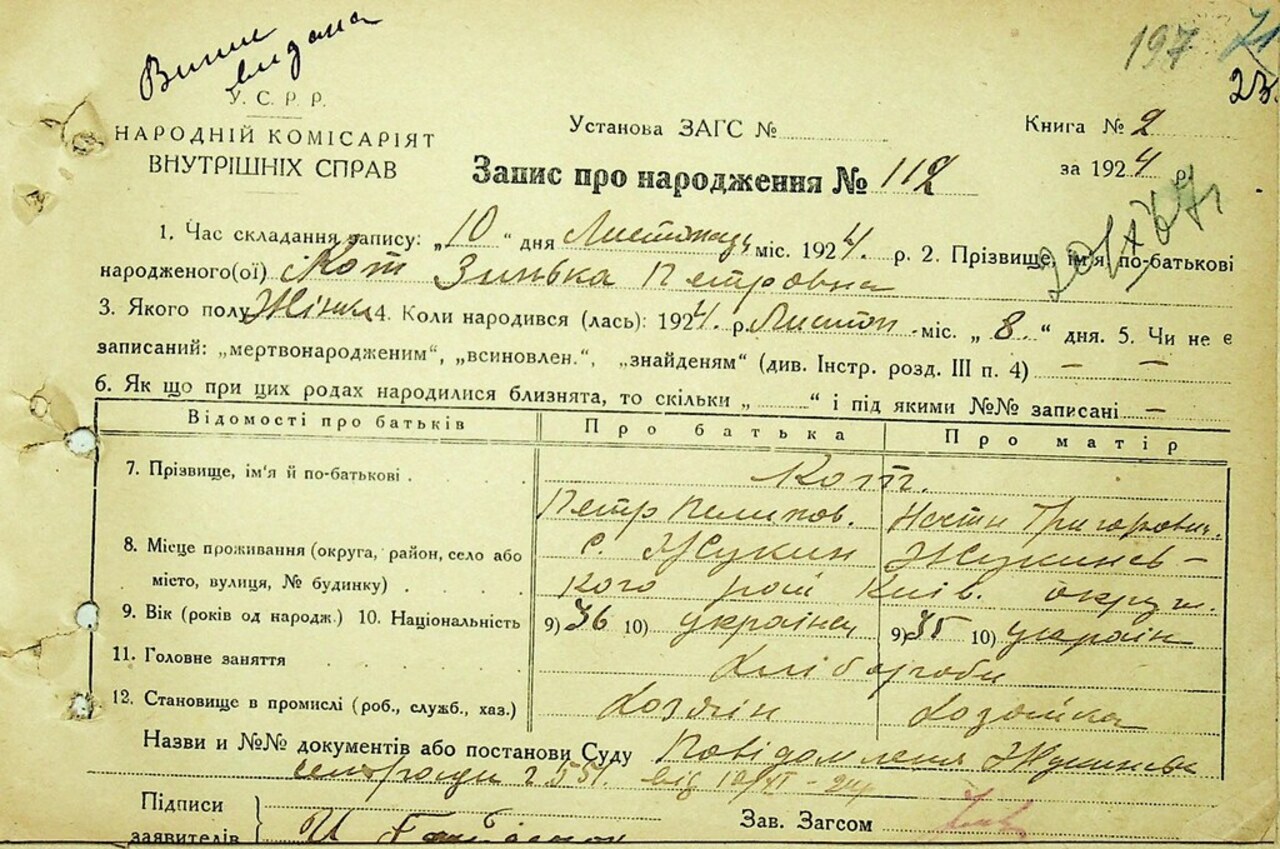 197 71
23
видана
У. С. Р. Р.
НАРОДНІЙ КОМІСАРІЯТ
ВНУТРІШНІХ СПРАВ
Установа ЗАГС №
Книга № 2
за 1924 р.
Запис про народження № 112
1. Час складання запису: „10“ дня Листопад міс. 1924. р. 2. Прізвище, ім'я по-батькові
народженого(ої) Кот Зинька Петровна
3. Якого полу Жіноч 4. Коли народився (лась): 1924. р. Листоп. міс. „8“ дня. 5. Чи не є
записаний: „мертвонародженим“, „всиновлен.“, „знайденям“ (див. Інстр. розд. III п. 4) — —
6. Як що при цих родах народилися близнята, то скільки „ “ і під якими №№ записані —
Відомості про батьків Про батька Про матір
7. Прізвище, ім'я й по-батькові Кот.
Петр Пилипов. Григоровн.
8. Місце проживання (округа, район, село або с. Жукин Жукинсь-
місто, вулиця, № будинку) кого рай Київ. округи.
9. Вік (років од народж.) 10. Національність 9) 36 10) українец 9) 35 10) україн
11. Головне заняття Хлібороби
12. Становище в промислі (роб., служб., хаз.) Хозяін Хозяйка
Назви и №№ документів або постанови Суду Повідомлення Жукинськ
сельради 2551. від 10/XI-24р
Підписи
заявителів
Зав. Загсом